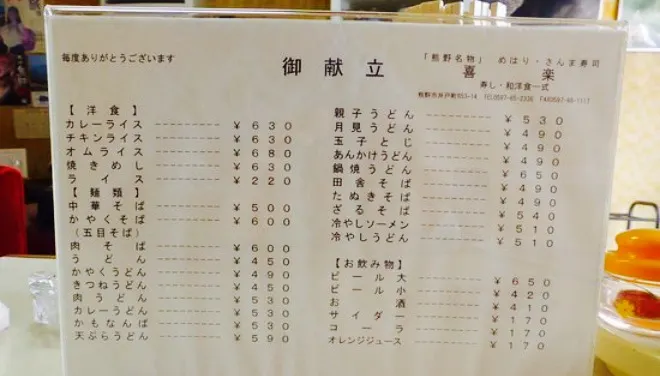 毎度ありがとうございます
御献立
「熊野名物」 めはり・さんま寿司
喜楽
寿し・和洋食一式
熊野市井戸町653-14
【洋食】
カレーライス ¥630
チキンライス ¥630
オムライス ¥680
焼きめし ¥630
ライス ¥220
【麺類】
中華そば ¥500
かやくそば ¥600
(五目そば)
肉そば ¥600
うどん ¥450
かやくうどん ¥490
きつねうどん ¥450
肉うどん ¥530
カレーうどん ¥530
かもなんば ¥530
天ぷらうどん ¥590
親子うどん ¥530
月見うどん ¥490
玉子とじ ¥490
あんかけうどん ¥490
鍋焼うどん ¥650
田舎そば ¥490
たぬきそば ¥490
ざるそば ¥540
冷やしソーメン ¥510
冷やしうどん ¥510
【お飲み物】
ビール大 ¥650
ビール小 ¥420
お酒 ¥410
サイダー ¥170
コーラ ¥170
オレンジジュース ¥170